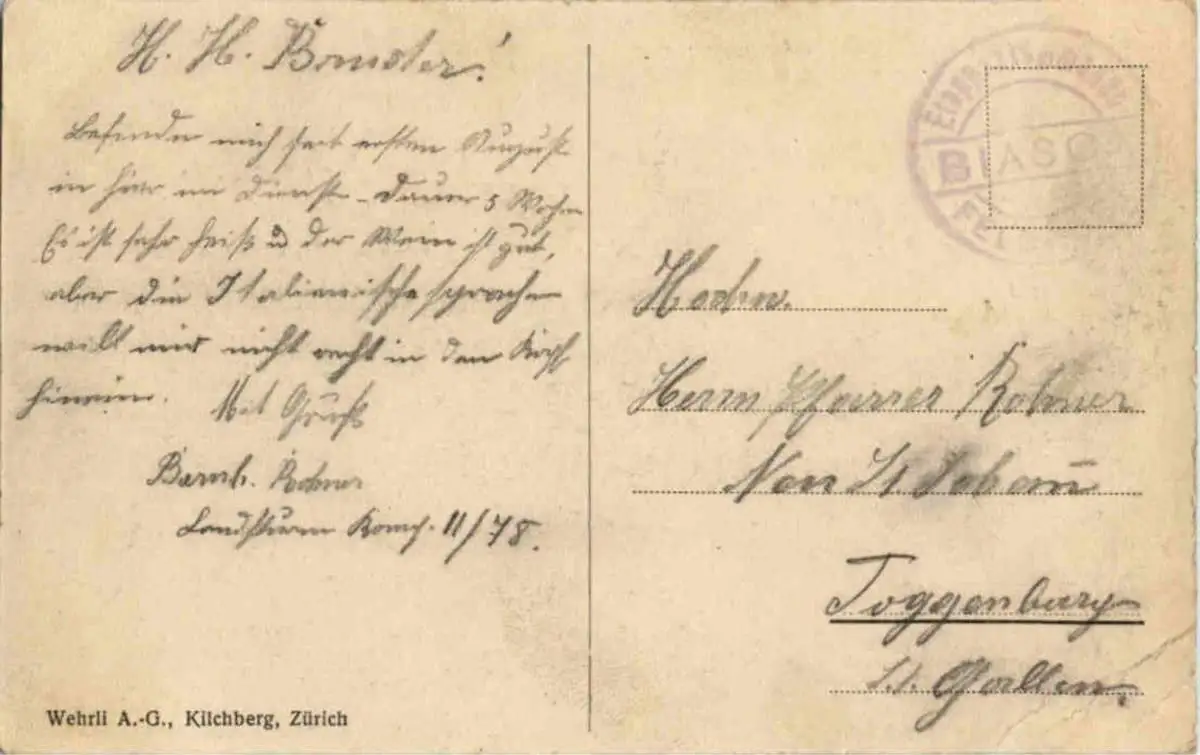 H. H.
Befinde mich seit ersten August
in hier im Dienst - Dauer 5 Wochen
Es ist sehr heiß u der Wein ist gut,
aber die Italienische sprache
will mir nicht recht in den Kopf
hinein. Mit Gruß
Bernh. Rohner
Landsturm Komp. II/78.
Wehrli A.-G., Kilchberg, Zürich
BIASCA
Hochw.
Herrn Pfarrer Rohner
Neu St Johann
Toggenburg
St. Gallen.